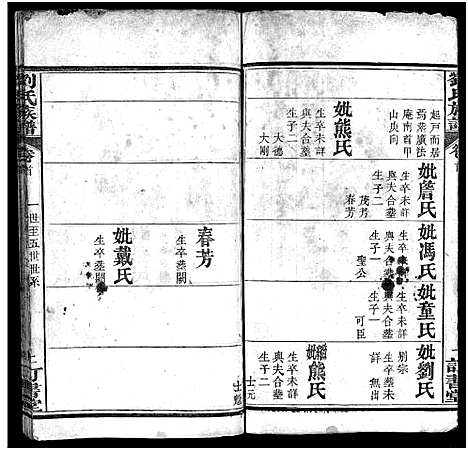 劉氏族譜
卷首
起戸而居
葬廣法
庵南首甲
山庚向
妣熊氏
生卒未詳
與夫合墓
生子二
大德
大剛
妣詹氏
生卒未詳
與夫合墓
生子二
茂芳
春芳
妣馮氏
生卒未詳
與夫合墓
生子一
聖公
妣童氏
生卒未詳
與夫合墓
生子一
可臣
妣劉氏
別宗
生卒墓未
詳 無出
繼熊氏
生卒未詳
與夫合墓
生子二
士元
士魁
春芳
生卒墓闕
妣戴氏
生卒墓闕
劉氏族譜
卷首
一世至五世世系